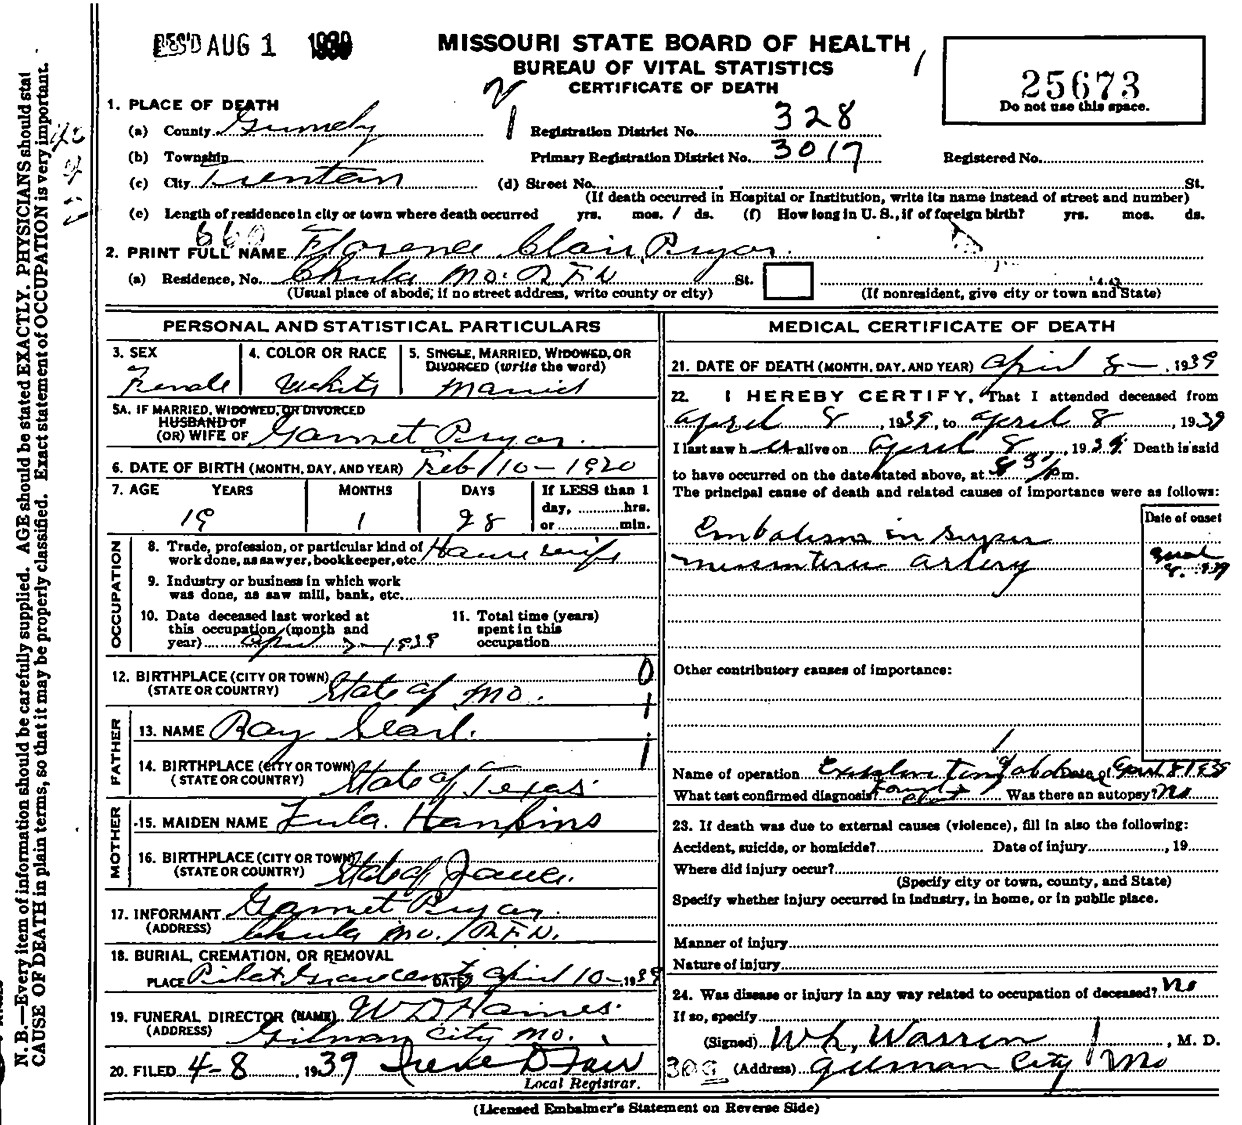 REC'D AUG 1 1939
MISSOURI STATE BOARD OF HEALTH
BUREAU OF VITAL STATISTICS
CERTIFICATE OF DEATH
25673
Do not use this space.
1. PLACE OF DEATH
(a) County Grundy Registration District No. 328
(b) Township Primary Registration District No. 3017 Registered No.
(c) City Trenton (d) Street No. St.
(If death occurred in Hospital or Institution, write its name instead of street and number)
(e) Length of residence in city or town where death occurred yrs. mos. 1 ds. (f) How long in U. S., if of foreign birth? yrs. mos. ds.
660
2. PRINT FULL NAME Florence Clair Pryor
(a) Residence, No. Chula Mo. R.F.D. St.
(Usual place of abode; if no street address, write county or city) (If nonresident, give city or town and State)
PERSONAL AND STATISTICAL PARTICULARS
3. SEX 4. COLOR OR RACE 5. SINGLE, MARRIED, WIDOWED, OR DIVORCED (write the word)
Female White Married
5A. IF MARRIED, WIDOWED, OR DIVORCED
HUSBAND OF
(OR) WIFE OF Garnet Pryor
6. DATE OF BIRTH (MONTH, DAY, AND YEAR) Feb 10 - 1920
7. AGE YEARS MONTHS DAYS If LESS than 1 day, hrs. or min.
19 1 28
OCCUPATION
8. Trade, profession, or particular kind of work done, as sawyer, bookkeeper, etc. House wife
9. Industry or business in which work was done, as saw mill, bank, etc.
10. Date deceased last worked at this occupation (month and year) April 7 - 1939
11. Total time (years) spent in this occupation
12. BIRTHPLACE (CITY OR TOWN)
(STATE OR COUNTRY) State of Mo.
FATHER
13. NAME Ray Searl.
14. BIRTHPLACE (CITY OR TOWN)
(STATE OR COUNTRY) State of Texas
MOTHER
15. MAIDEN NAME Eula Hankins
16. BIRTHPLACE (CITY OR TOWN)
(STATE OR COUNTRY) State of Iowa.
17. INFORMANT Garnet Pryor
(ADDRESS) Chula Mo. R.F.D.
18. BURIAL, CREMATION, OR REMOVAL
PLACE Pilot Grove DATE April 10 - 1939
19. FUNERAL DIRECTOR (NAME) W D Haines
(ADDRESS) Gilman City Mo.
20. FILED 4-8, 1939 Irene D Fair
Local Registrar.
MEDICAL CERTIFICATE OF DEATH
21. DATE OF DEATH (MONTH, DAY, AND YEAR) April 8 -, 1939
22. I HEREBY CERTIFY, That I attended deceased from
April 8, 1939, to April 8, 1939
I last saw her alive on April 8, 1939. Death is said
to have occurred on the date stated above, at 8 30 P m.
The principal cause of death and related causes of importance were as follows:
Date of onset
Embolism in super
messenteric artery
8. 1939
Other contributory causes of importance:
Name of operation Date of April 8 1939
What test confirmed diagnosis? Was there an autopsy? No
23. If death was due to external causes (violence), fill in also the following:
Accident, suicide, or homicide? Date of injury, 19
Where did injury occur?
(Specify city or town, county, and State)
Specify whether injury occurred in industry, in home, or in public place.
Manner of injury
Nature of injury
24. Was disease or injury in any way related to occupation of deceased? No
If so, specify
(Signed) Wh, Warren, M. D.
(Address) Gilman City Mo
(Licensed Embalmer's Statement on Reverse Side)
N. B.—Every item of information should be carefully supplied. AGE should be stated EXACTLY. PHYSICIANS should stat
CAUSE OF DEATH in plain terms, so that it may be properly classified. Exact statement of OCCUPATION is very important.